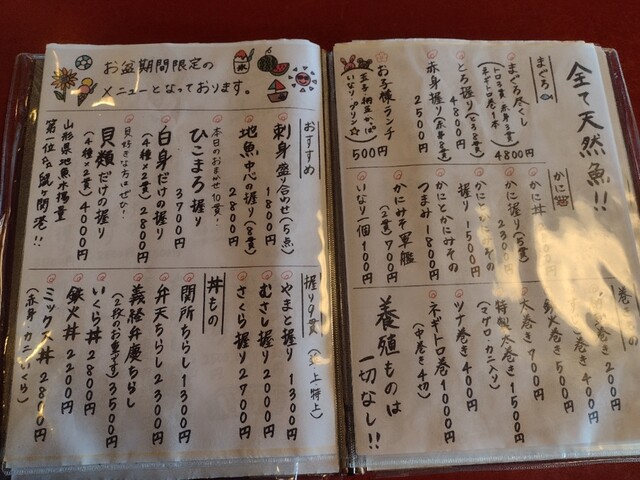 全て天然魚!!
まぐろ
まぐろ尽くし
トロ3貫 赤身3貫
ネギトロ巻1本 4800円
とろ握り(とろ8貫)
4800円
赤身握り(赤身8貫)
2500円
お子様ランチ
いなり・プリン☆
500円
かに
かに丼
かに握り(5貫)
2300円
かにとかにみその
握り 1500円
かにとかにみその
つまみ 1800円
かにみそ軍艦
(2貫) 700円
いなり一個 100円
200円
400円
鉄火巻き 500円
太巻き 700円
特製太巻き 1500円
(マグロ・カニ入り)
ツナ巻き 400円
ネギトロ巻き 1000円
(中巻き4切)
養殖ものは
一切なし!!
お盆期間限定の
メニューとなっております。
おすすめ
刺身盛り合わせ(5点)
1800円
地魚中心の握り(8貫)
2800円
本日のおまかせ10貫!
ひこまろ握り
3700円
白身だけの握り
(4種×2貫) 2800円
貝好きな方はぜひ!
貝類だけの握り
(4種×2貫) 4000円
山形県地魚水揚量
第一位な鼠ヶ関港!!
握り9貫(並 上 特上)
やまと握り 1300円
むさし握り 2000円
さくら握り 2700円
丼もの
関所ちらし 1300円
弁天ちらし 2300円
義経弁慶ちらし
(2枚のお重です) 3500円
いくら丼 2800円
鉄火丼 2200円
ミックス丼 2800円
(赤身・カニ・いくら)